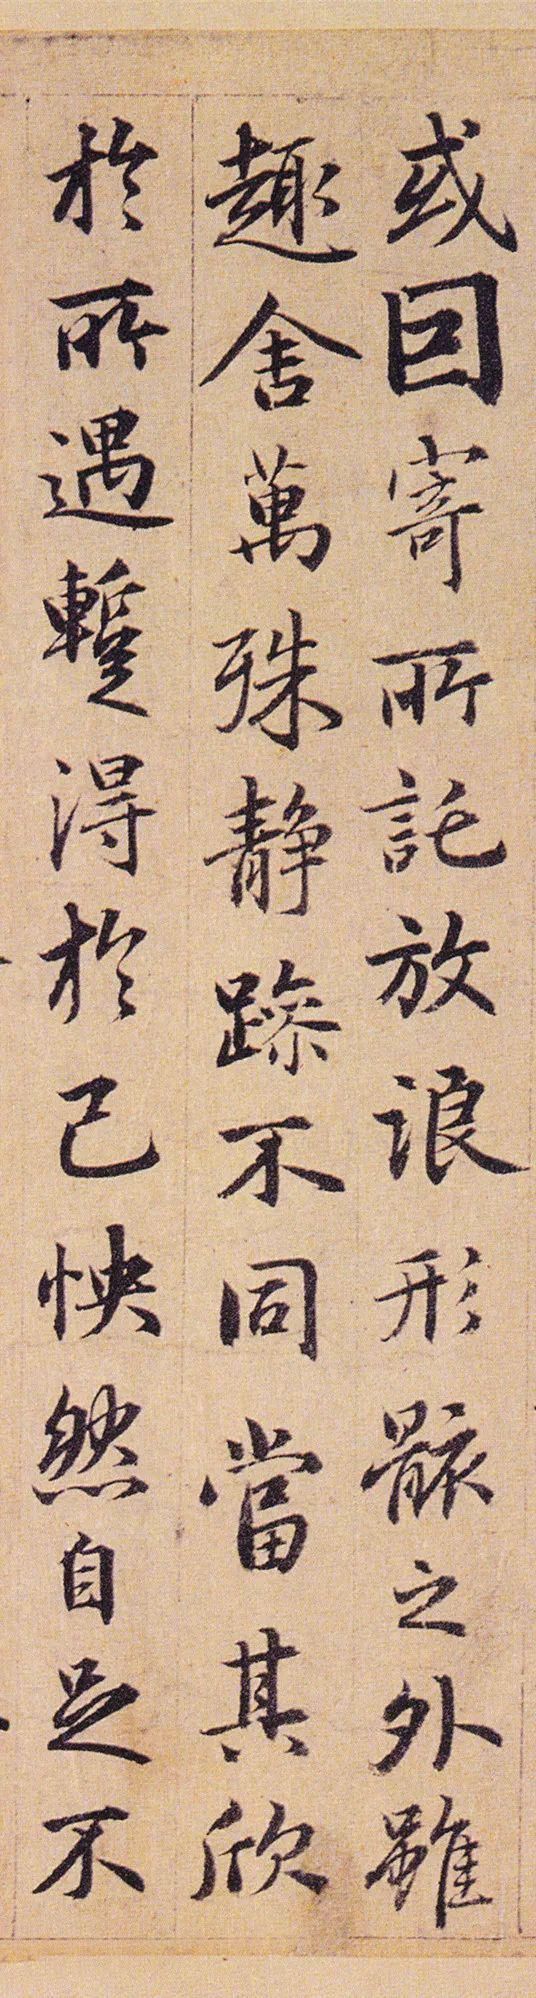 或因寄所託放浪形骸之外雖
趣舍萬殊静躁不同當其欣
於所遇蹔得於己怏然自足不